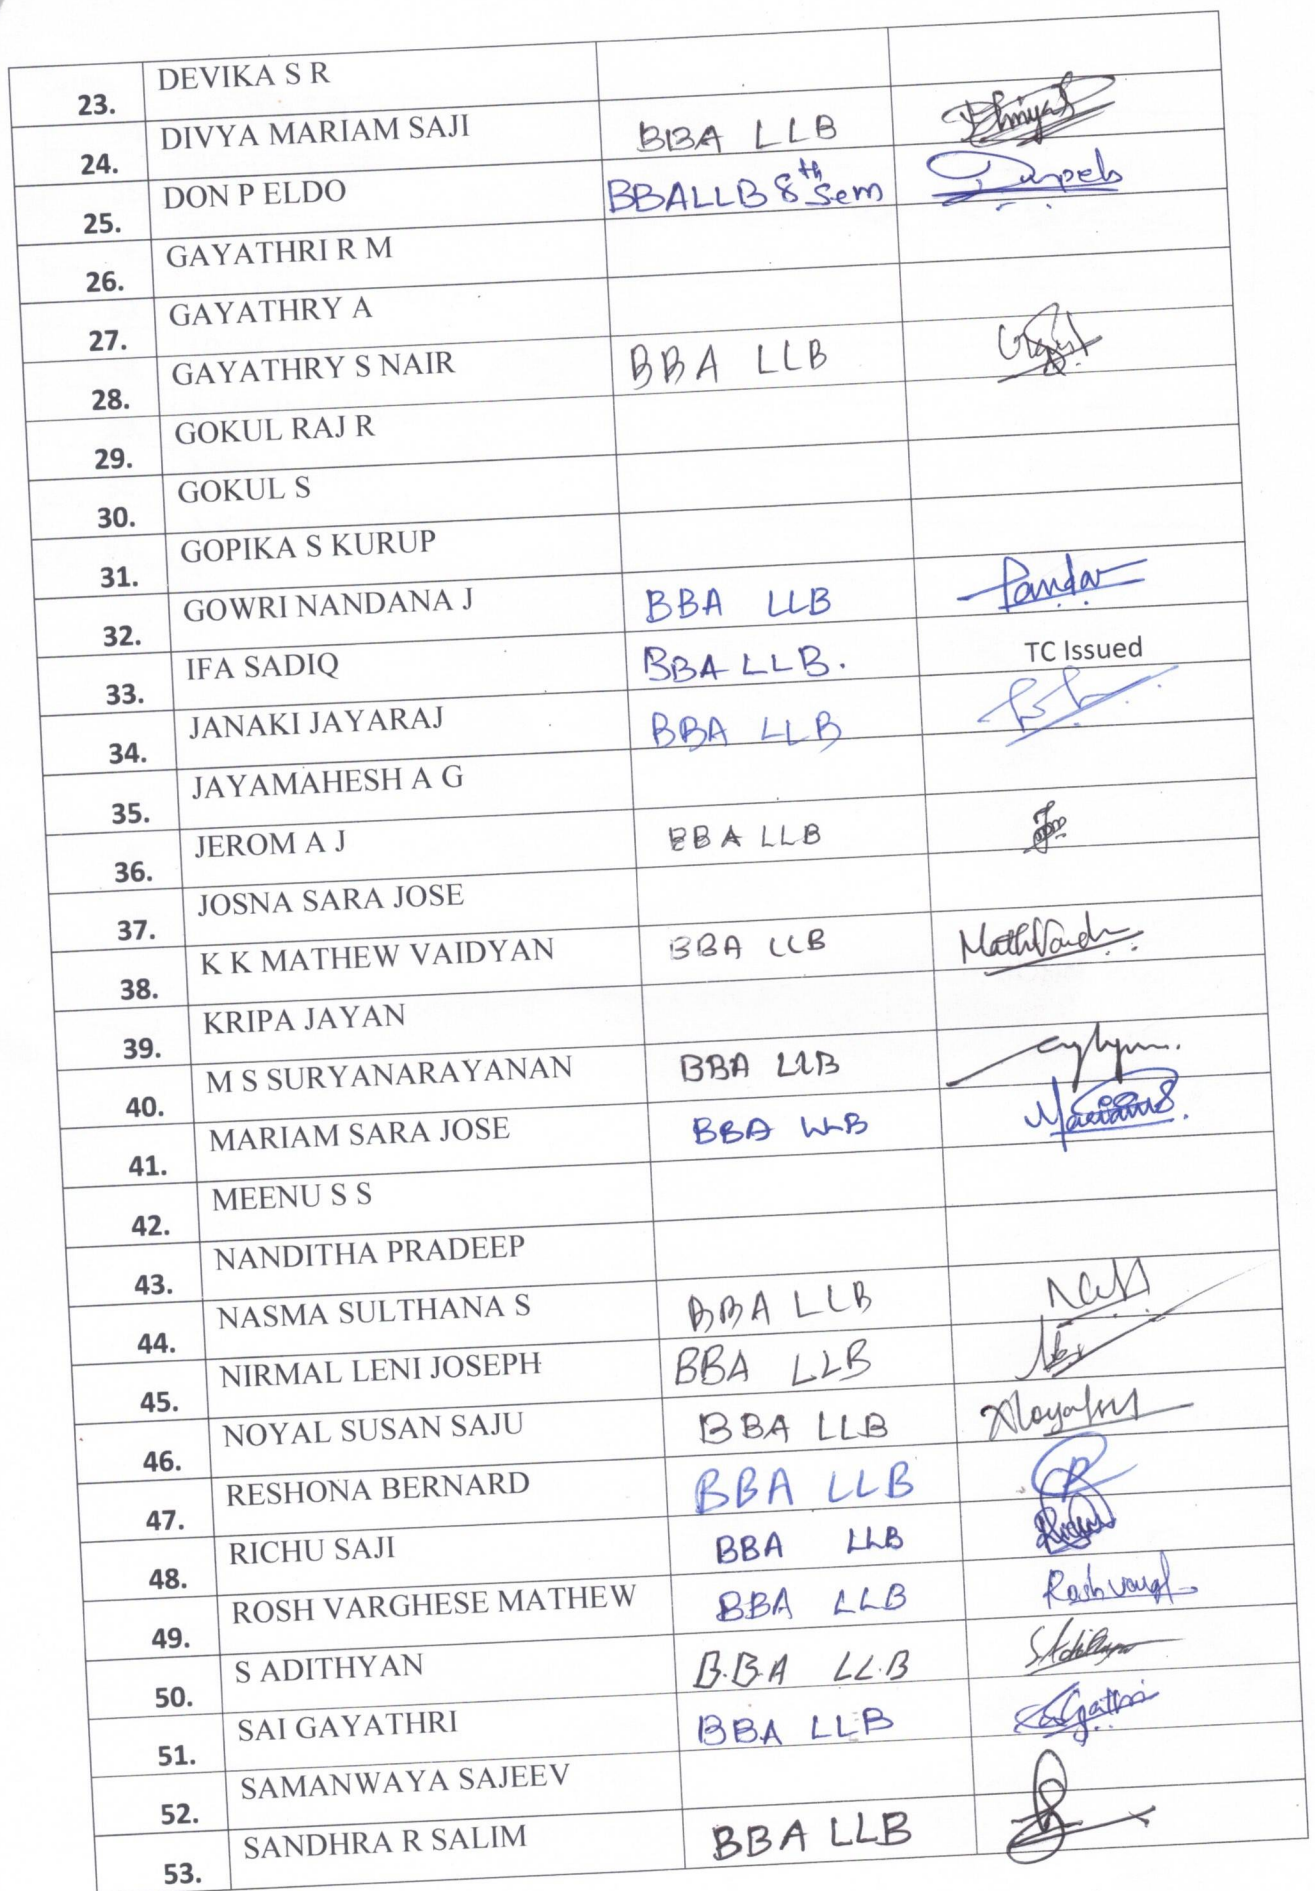 23. DEVIKA S R
24. DIVYA MARIAM SAJI BBA LLB
25. DON P ELDO BBALLB 8th Sem
26. GAYATHRI R M
27. GAYATHRY A
28. GAYATHRY S NAIR BBA LLB
29. GOKUL RAJ R
30. GOKUL S
31. GOPIKA S KURUP
32. GOWRI NANDANA J BBA LLB
33. IFA SADIQ BBA LLB. TC Issued
34. JANAKI JAYARAJ BBA LLB
35. JAYAMAHESH A G
36. JEROM A J BBA LLB
37. JOSNA SARA JOSE
38. K K MATHEW VAIDYAN BBA LLB
39. KRIPA JAYAN
40. M S SURYANARAYANAN BBA LLB
41. MARIAM SARA JOSE BBA LLB
42. MEENU S S
43. NANDITHA PRADEEP
44. NASMA SULTHANA S BBA LLB
45. NIRMAL LENI JOSEPH BBA LLB
46. NOYAL SUSAN SAJU BBA LLB
47. RESHONA BERNARD BBA LLB
48. RICHU SAJI BBA LLB
49. ROSH VARGHESE MATHEW BBA LLB
50. S ADITHYAN B.B.A LL.B
51. SAI GAYATHRI BBA LLB
52. SAMANWAYA SAJEEV
53. SANDHRA R SALIM BBA LLB